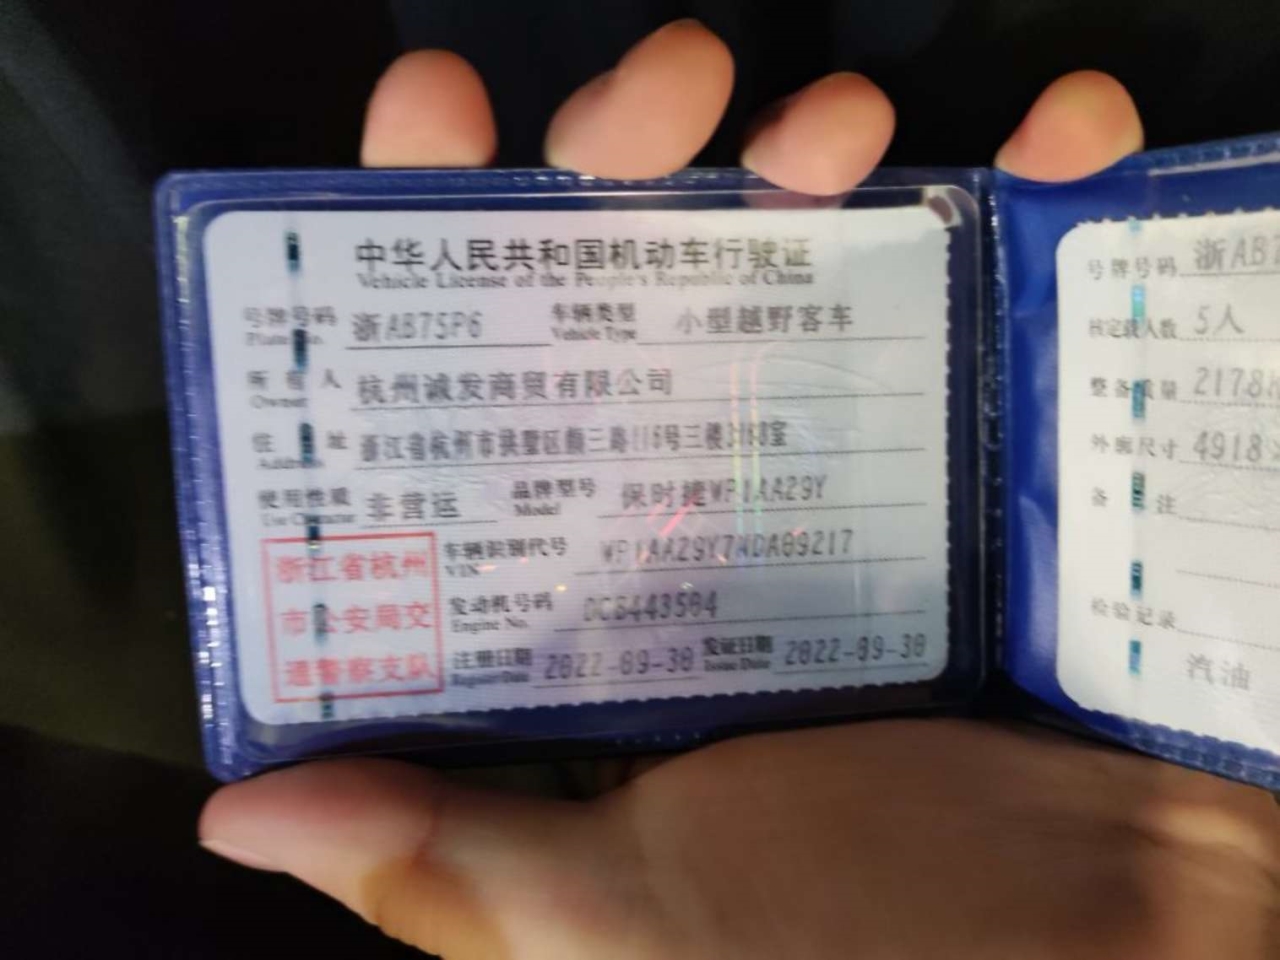 中华人民共和国机动车行驶证
Vehicle License of the People's Republic of China
号牌号码 浙AB75P6 车辆类型 小型越野客车
Plate No. Vehicle Type
所有人 杭州诚发商贸有限公司
Owner
住址 浙江省杭州市拱墅区 三路116号三楼 室
Address
使用性质 非营运 品牌型号 保时捷WP1AA29Y
Use Character Model
浙江省杭州
市公安局交
通警察支队
车辆识别代号 WP1AA29Y7NDA09217
VIN
发动机号码 DCB443504
Engine No.
注册日期 2022-09-30 发证日期 2022-09-30
Register Date Issue Date
号牌号码 浙AB7
核定载人数 5人
整备质量 2178k
外廓尺寸 4918
备注
检验记录
汽油